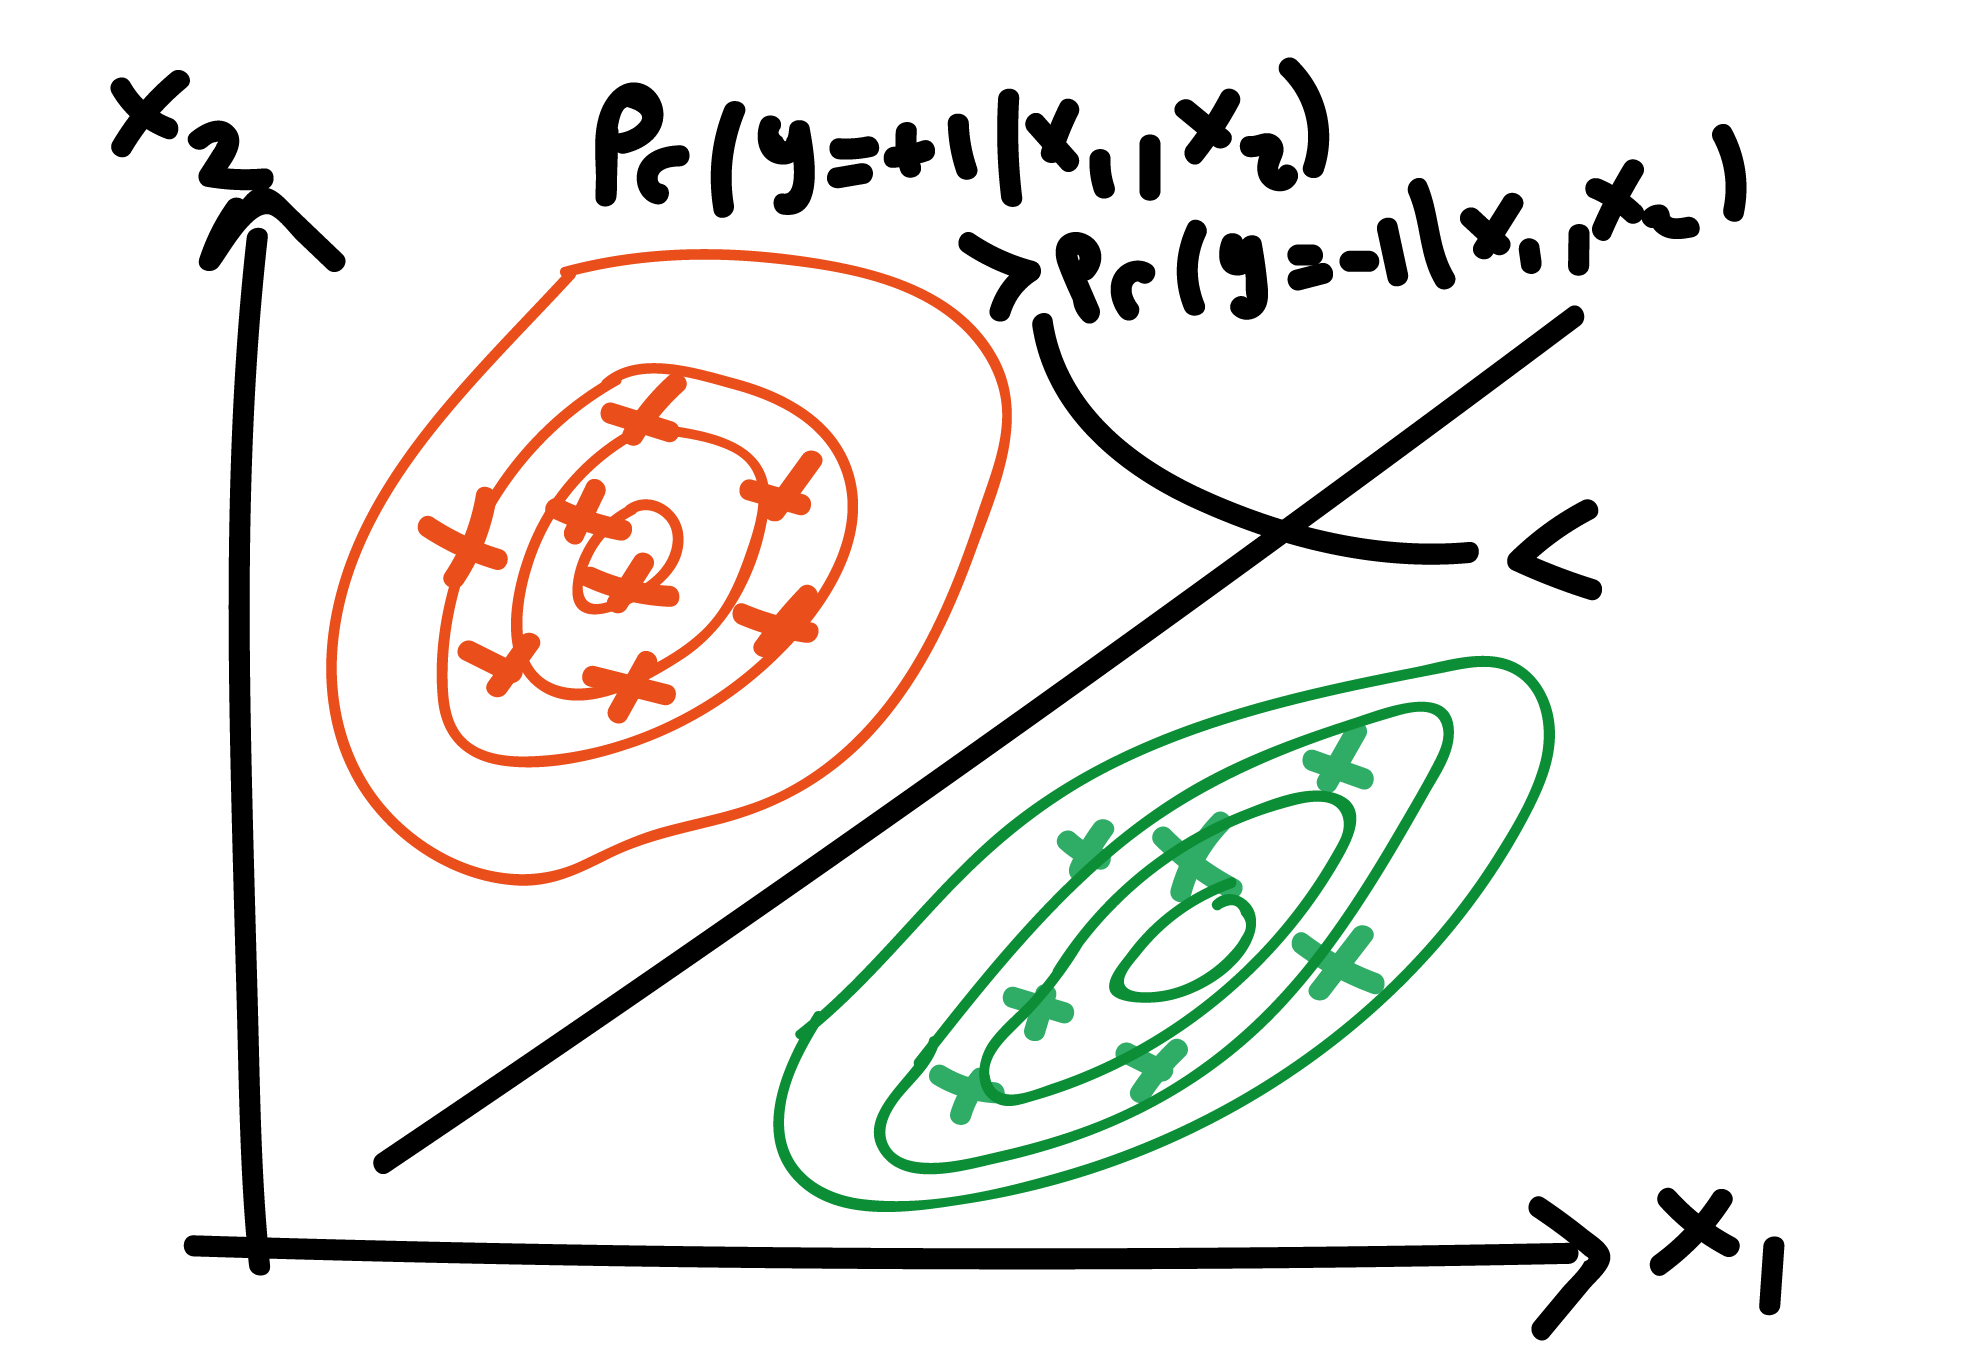 x₂
Pr(y=+1|x₁,x₂)
>Pr(y=-1|x₁,x₂)
<
x₁